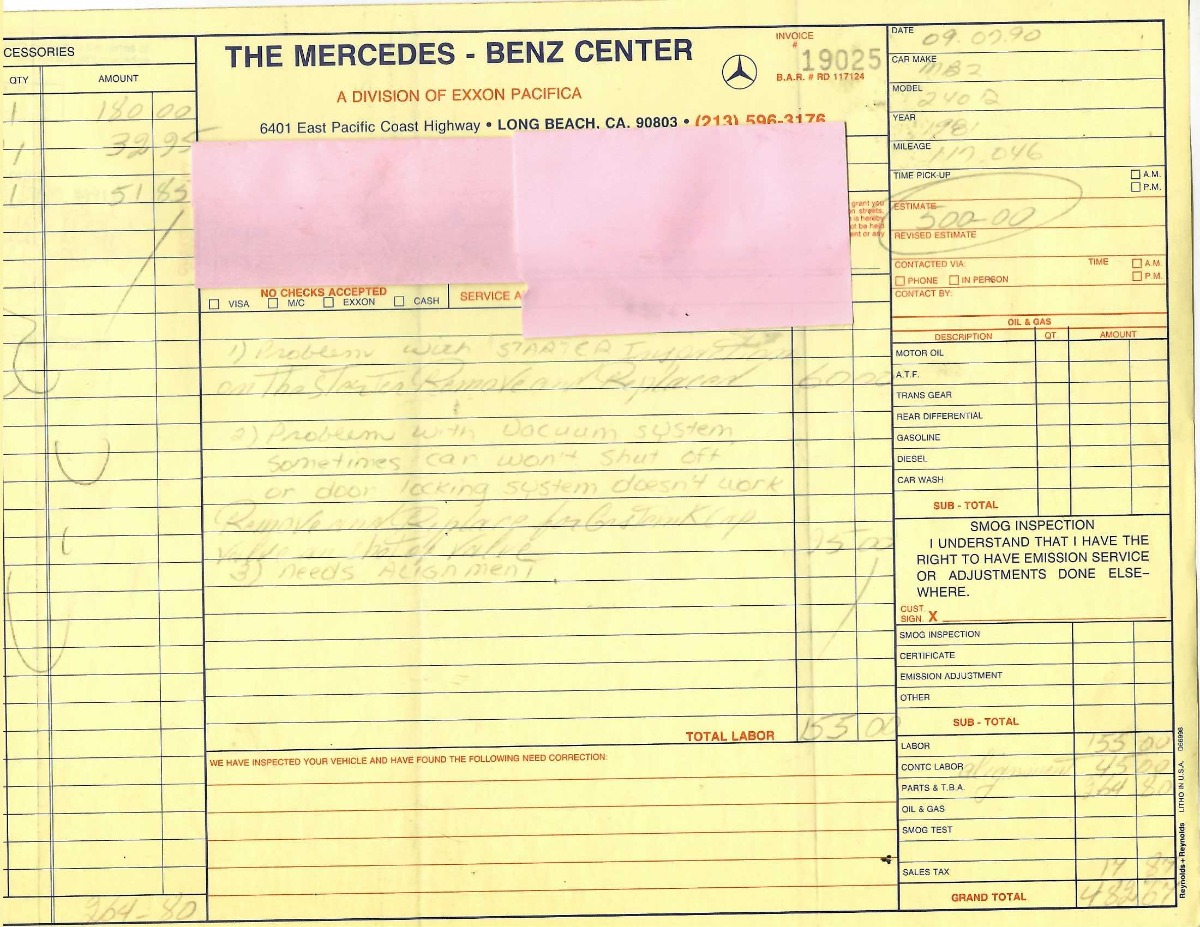 CESSORIES
QTY AMOUNT
1 180 00
1 32 95
1 51 85
264-80
THE MERCEDES - BENZ CENTER
A DIVISION OF EXXON PACIFICA
6401 East Pacific Coast Highway • LONG BEACH, CA. 90803 • (213) 596-3176
INVOICE
# 19025
B.A.R. # RD 117124
grant you
n streets,
is hereby
ot be held
ent or any
NO CHECKS ACCEPTED
VISA M/C EXXON CASH
SERVICE A
1) Problem with STARTER Inspection
on The Starter Remove and Replaced 60 00
2) Problem with Vacuum system
sometimes car won't shut off
or door locking system doesn't work
Remove and Replace for
valve 95 00
3) needs Alignment
TOTAL LABOR 155 00
WE HAVE INSPECTED YOUR VEHICLE AND HAVE FOUND THE FOLLOWING NEED CORRECTION:
DATE 09.07.90
CAR MAKE MBZ
MODEL 240 D
YEAR 1981
MILEAGE 117 046
TIME PICK-UP A.M.
P.M.
ESTIMATE
500-00
REVISED ESTIMATE
CONTACTED VIA: TIME A.M.
PHONE IN PERSON P.M.
CONTACT BY:
OIL & GAS
DESCRIPTION QT. AMOUNT
MOTOR OIL
A.T.F.
TRANS GEAR
REAR DIFFERENTIAL
GASOLINE
DIESEL
CAR WASH
SUB - TOTAL
SMOG INSPECTION
I UNDERSTAND THAT I HAVE THE
RIGHT TO HAVE EMISSION SERVICE
OR ADJUSTMENTS DONE ELSE-
WHERE.
CUST.
SIGN. X
SMOG INSPECTION
CERTIFICATE
EMISSION ADJUSTMENT
OTHER
SUB - TOTAL
LABOR 155 00
CONTC LABOR alignment 45 00
PARTS & T.B.A. 264 80
OIL & GAS
SMOG TEST
SALES TAX 17 87
GRAND TOTAL 482 67
Reynolds + Reynolds LITHO IN U.S.A. D66996